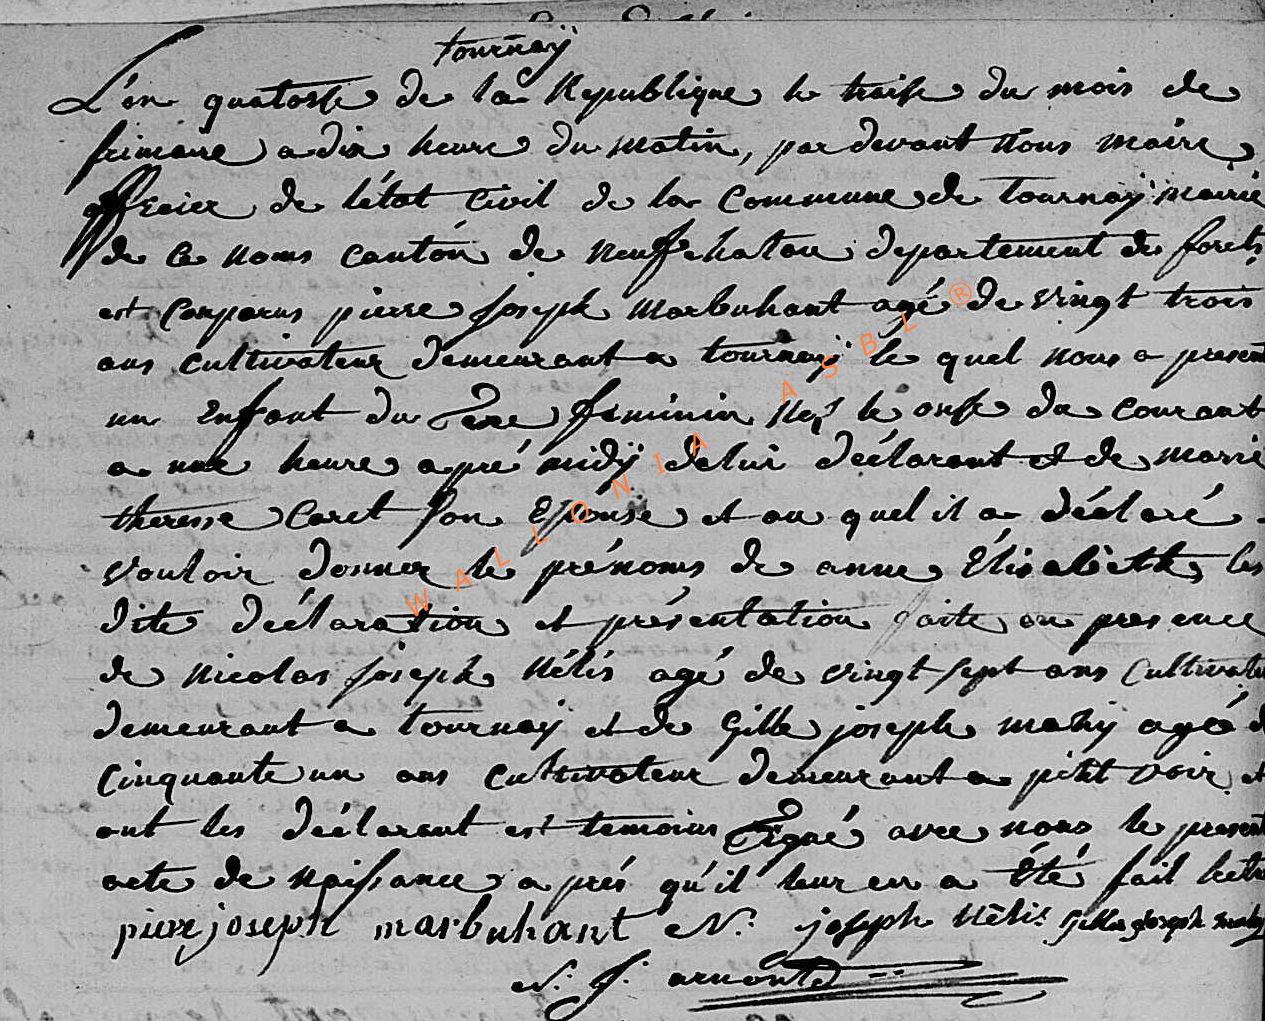 tournaÿ
L'en quatorse de la Republique le traise du mois de
frimaire a dix heure du matin, par devant nous maire
officier de l'état Civil de la Commune de Tournaÿ mairie
de ce noms canton de neufchatau departement des forets
est Comparus pierre Joseph Marbuhant agé de vingt trois
ans cultivateur demeurant a tournaÿ le quel nous a present
un Enfant du Sexe féminin Neé le onse du courant
a une heure apré midÿ de lui déclarant et de marie
theresse Caret son Epouse et au quel il a déclaré
vouloir donner le prénoms de anne Élisabeth, les
dite déclaration et présentation faite en presence
de Nicolas joseph Nélis agé de vingt sept ans Cultivate
demeurant a tournaÿ et de Gille joseph mahy agé d
Cinquante un ans cultivateur demeurant a pitit voir et
ont les déclarant est temoins Signé avec nous le present
acte de Naissance a prés qu'il leur en a Été fait lectu
pierre joseph marbuhant N. joseph Nélis Gille Joseph mahy
N. J. arnould
WALLONIA ASBL ®